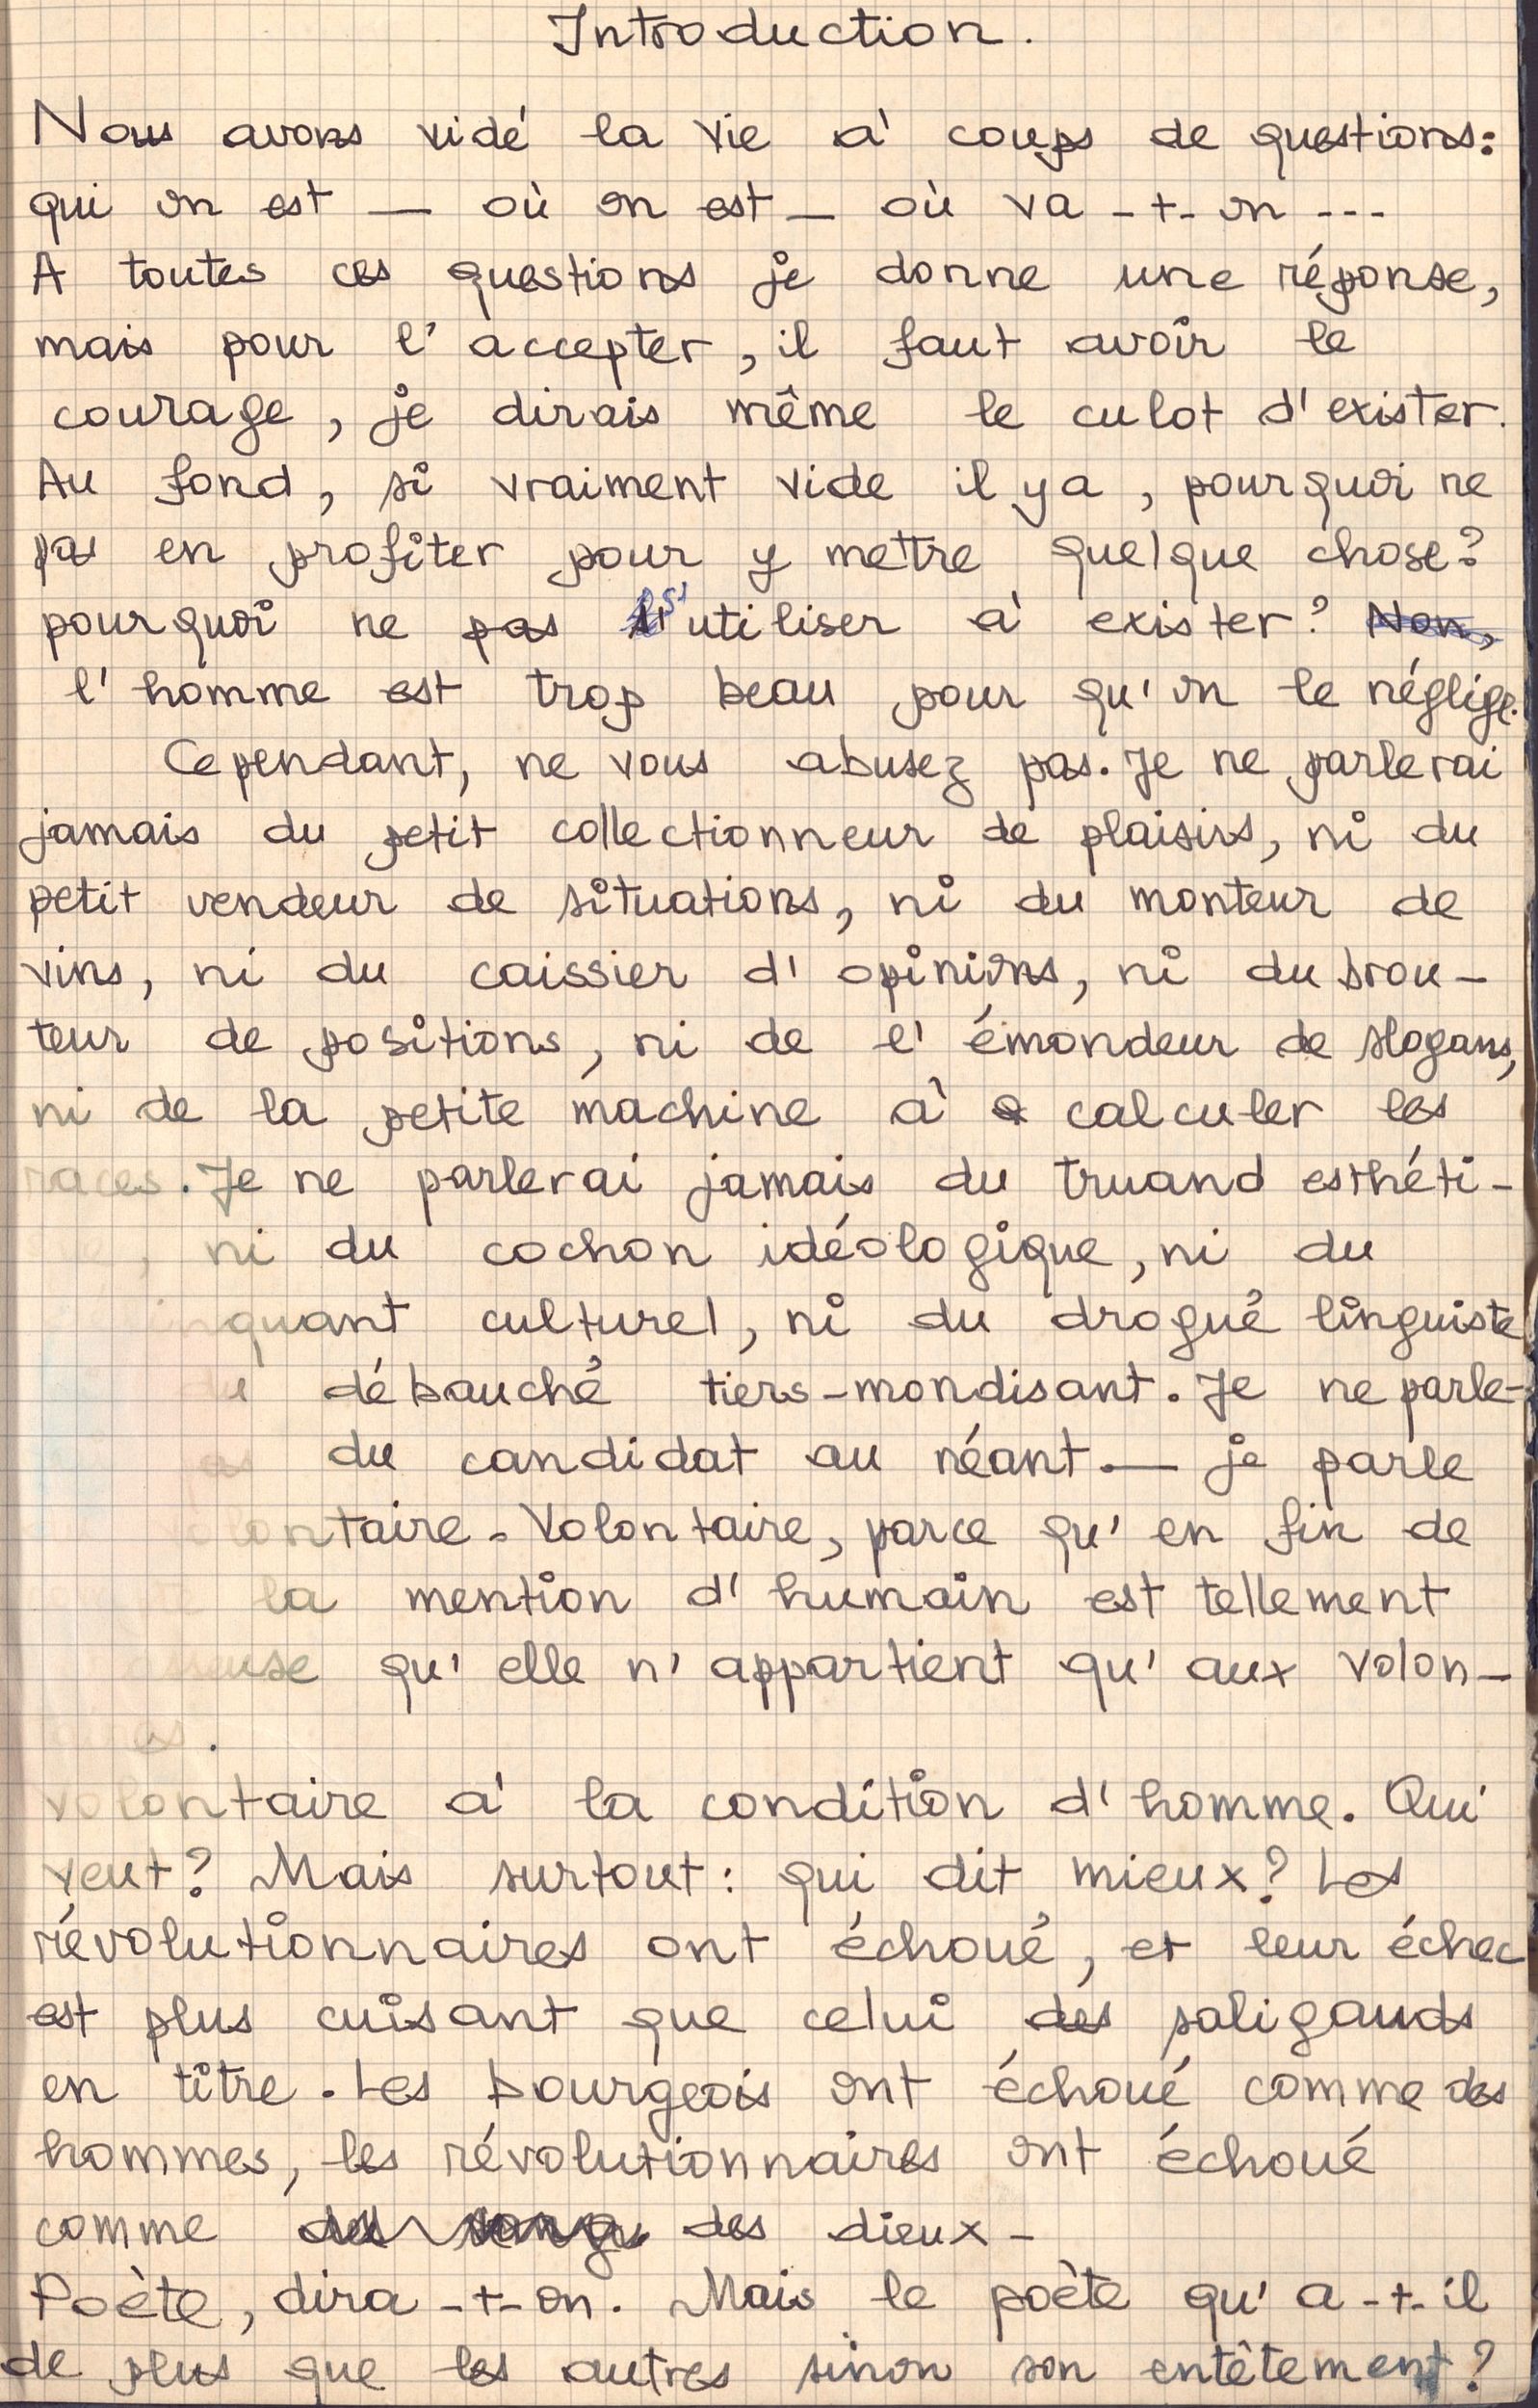 Introduction.
Nous avons vidé la vie à coups de questions:
qui on est — où on est — où va-t-on ---
A toutes ces questions je donne une réponse,
mais pour l'accepter, il faut avoir le
courage, je dirais même le culot d'exister.
Au fond, si vraiment vide il y a, pourquoi ne
pas en profiter pour y mettre quelque chose?
pourquoi ne pas s'utiliser à exister? Non,
l'homme est trop beau pour qu'on le néglige.
Cependant, ne vous abusez pas. Je ne parlerai
jamais du petit collectionneur de plaisirs, ni du
petit vendeur de situations, ni du monteur de
vins, ni du caissier d'opinions, ni du brou-
teur de positions, ni de l'émondeur de slogans,
ni de la petite machine à calculer les
races. Je ne parlerai jamais du truand esthéti-
, ni du cochon idéologique, ni du
inquant culturel, ni du drogué linguiste
débauché tiers-mondisant. Je ne parle-
du candidat au néant. — je parle
lontaire. Volontaire, parce qu'en fin de
la mention d'humain est tellement
euse qu'elle n'appartient qu'aux volon-
.
volontaire à la condition d'homme. Qui
veut? Mais surtout: qui dit mieux? Les
révolutionnaires ont échoué, et leur échec
est plus cuisant que celui des saligauds
en titre. Les bourgeois ont échoué comme des
hommes, les révolutionnaires ont échoué
comme des dieux -
Poète, dira-t-on. Mais le poète qu'a-t-il
de plus que les autres sinon son entêtement?